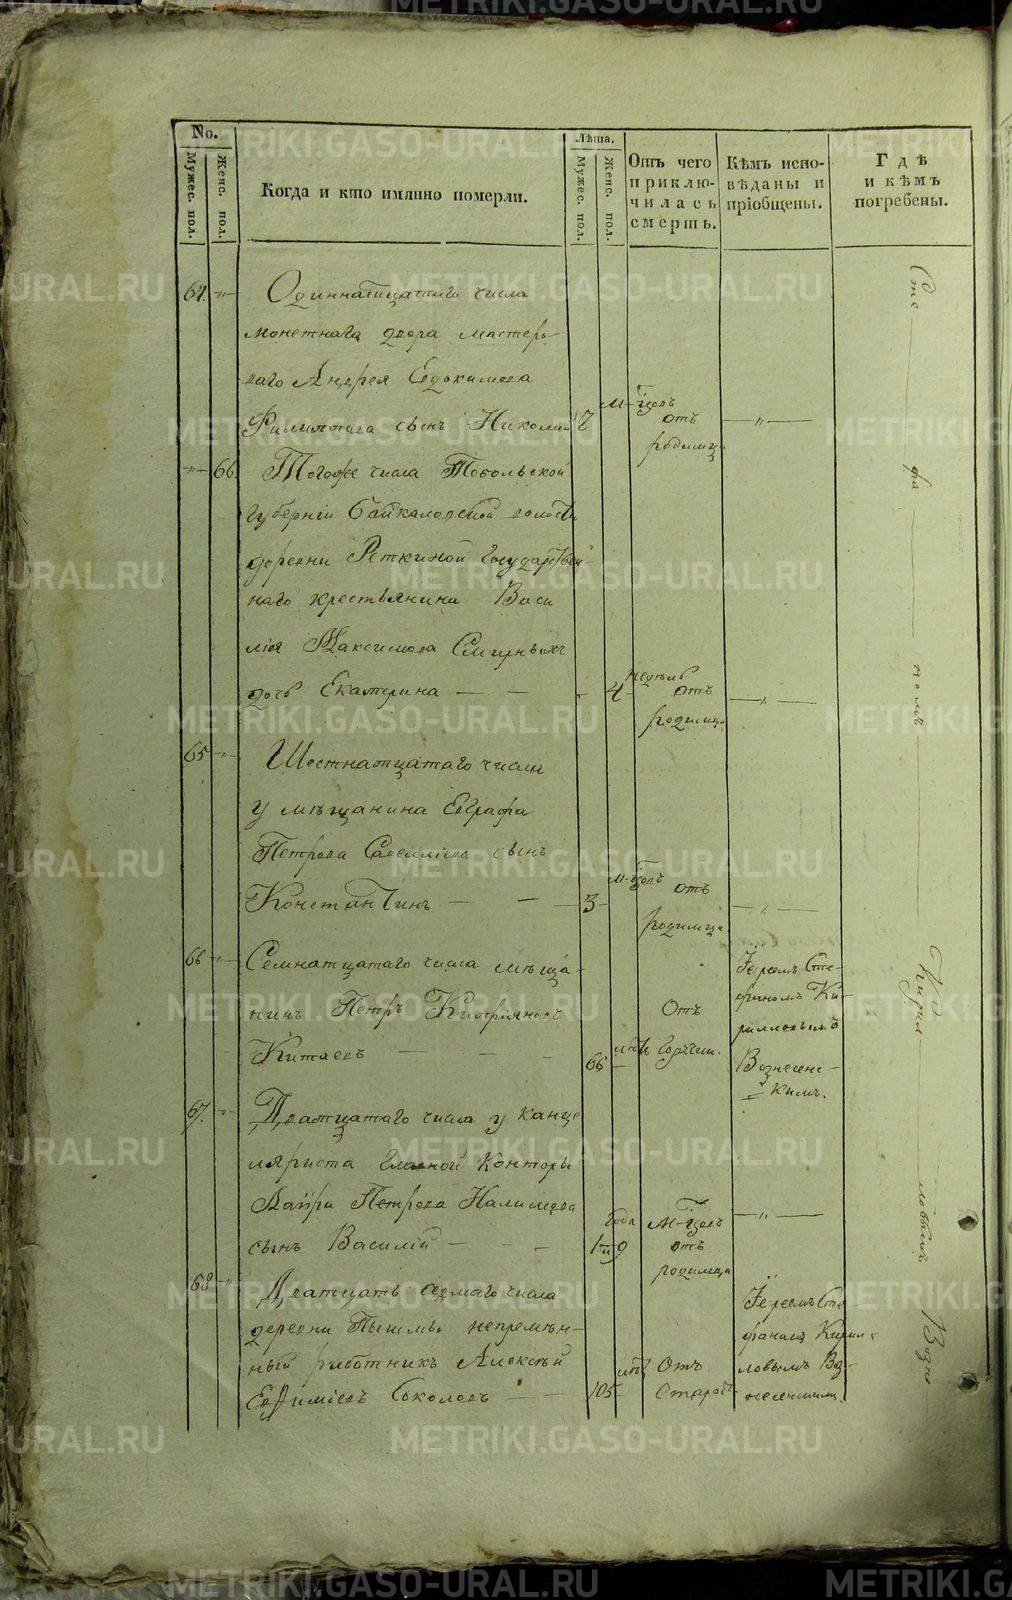 No.
Лѣта.
Мужес. пол.
Женс. пол.
Когда и кто имянно померли.
Мужес. пол.
Женс. пол.
Отъ чего
приклю-
чилась
смерть.
Кѣмъ испо-
вѣданы и
пріобщены.
Гдѣ
и кѣмъ
погребены.
64. -"- Одиннатцатаго числа
монетнаго двора мастеро-
ваго Андрея Евдокимова
Филиптова сынъ Николай 2 м-цовъ отъ родимца -"-
-"- 66. Тогоже числа Тобольской
губерніи Байкаловской волости
деревни Реткиной государствен-
наго крестьянина Васи
лія Максимова Смирныхъ
дочь Екатерина - - - 4 недѣль отъ родимца -"-
65 -"- Шестнатцатаго числа
у мѣщанина Евграфа
Петрова Савелліева сынъ
Константинъ - - 3 м-цовъ отъ родимца -"-
66 -"- Семнатцатаго числа мѣща-
нинъ Петръ Кипріяновъ
Китаевъ - - - 66 лѣтъ Отъ горячки. Іереемъ Сте-
фаномъ Ки-
рилловымъ
Вознесенс-
кимъ.
67. -"- Дватцатаго числа у канце
ляриста главной конторы
Лавра Петрова Налимова
сынъ Василій - - - 1 года и 9 м-цовъ отъ родимца -"-
68 -"- Дватцать седмаго числа
деревни Пышмы непремѣн-
ный работникъ Алексѣй
Евфиміевъ Соколовъ - - 105 лѣтъ Отъ старости Іереемъ Сте
фаномъ Кирил
ловымъ Воз-
несенскимъ.
Сте фа номъ Кирил ловымъ Возне
METRIKI.GASO-URAL.RU